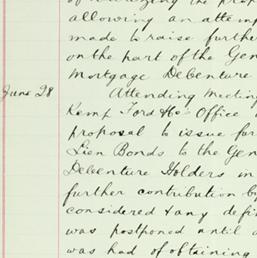 of realizing the prop
allowing an attemp
made to raise further
on the part of the Gen
Mortgage Debenture
June 28 Attending Meeting
Kemp Ford & Co's Office
proposal to issue for
Lien Bonds to the Gen
Debenture Holders in
further contribution by
considered & any defi
was postponed until
was had of obtaining